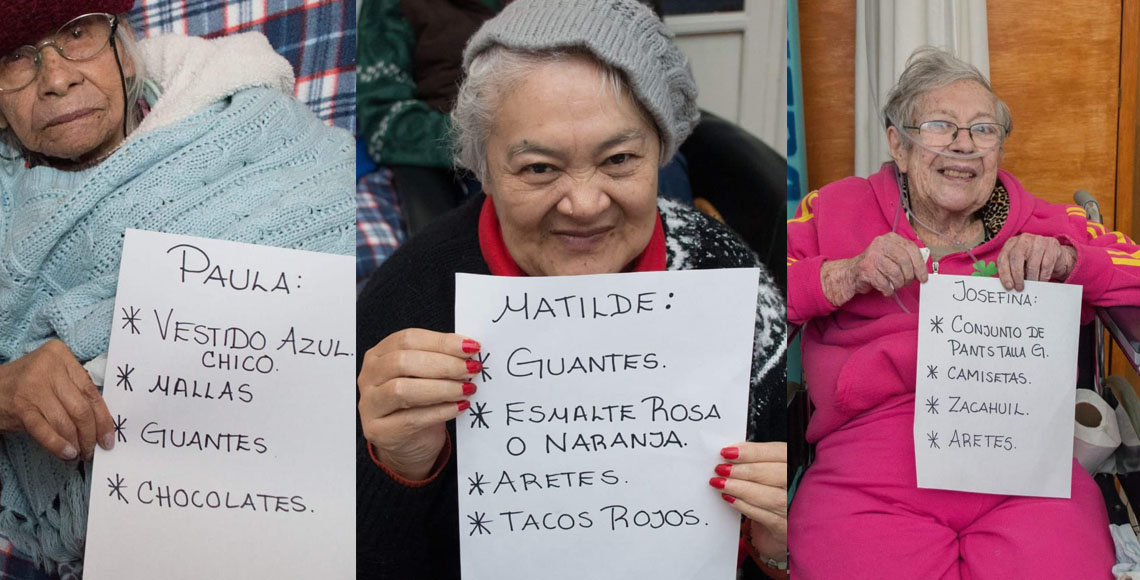 PAULA:
* VESTIDO AZUL
CHICO.
* MALLAS
* GUANTES
* CHOCOLATES.
MATILDE:
* GUANTES.
* ESMALTE ROSA
O NARANJA.
* ARETES.
* TACOS ROJOS.
JOSEFINA:
* CONJUNTO DE
PANTS TALLA G.
* CAMISETAS.
* ZACAHUIL.
* ARETES.